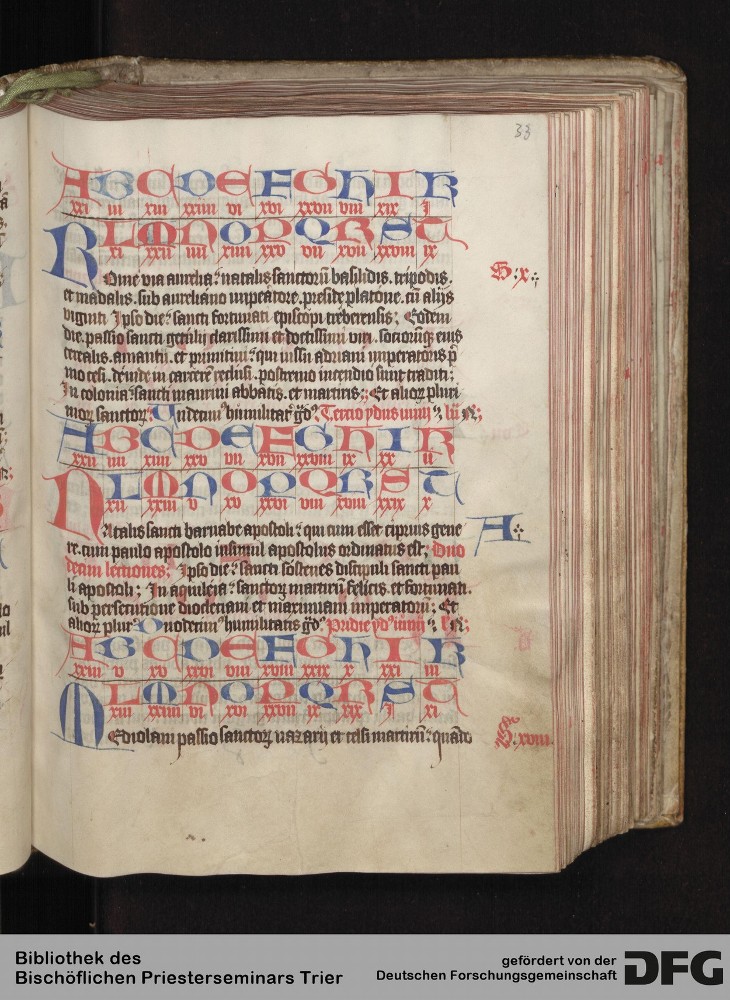 33
A B C D E F G H I K
xxi iii xiii xxiiii vi xvi xxvii viii xix j
L M N O P Q R S T
xi xxii iiii xiiii xxv vii xvii xxviii ix
ROme via aurelia natalis sanctoꝝ basilidis. tripodis.
et madalis. sub aureliano imperatore. preside platone. cū aliis
viginti Ipso die sancti fortunati episcopi treberensis; Eodem
die. passio sancti getulii clarissimi et doctissimi viri. sociorūqꝫ eius
cerealis. amantii. et primitiui qui iussu adriani imperatoris p̄
mo cesi. deinde in carcerē reclusi. postremo incendio sunt traditi;
In colonia sancti maurini abbatis. et martiris; Et alioꝝ pluri
moꝝ sanctoꝝ. Undecim' humilitat' Tercio ydus iunij
S. x.
A B C D E F G H I K
xxii iiii xiiii xxv vii xvii xxviii ix xx ii
L M N O P Q R S T
xii xxiii v xv xxvi viii xviii xxix x
NAtalis sancti barnabe apostoli qui cum esset ciprius gene
re. cum paulo apostolo insimul apostolus ordinatus est; Duo
decim lectiones; Ipso die sancti sostenes discipuli sancti pau
li apostoli; In aquileia sanctoꝝ martirum felicis et fortunati.
sub persecutione diocleciani et maximiani imperatoꝝ; Et
alioꝝ plur' Duodecim' humilitatis Pridie yd' iunij
A
A B C D E F G H I K
xxiii v xv xxvi viii xviii xxix x xxi iii
L M N O P Q R S T
xiii xxiiii vi xvi xxvii ix xix j xi
MEdiolani passio sanctoꝝ nazarij et celsi martirū quādo
xviii.
Bibliothek des
Bischöflichen Priesterseminars Trier
gefördert von der
Deutschen Forschungsgemeinschaft
DFG